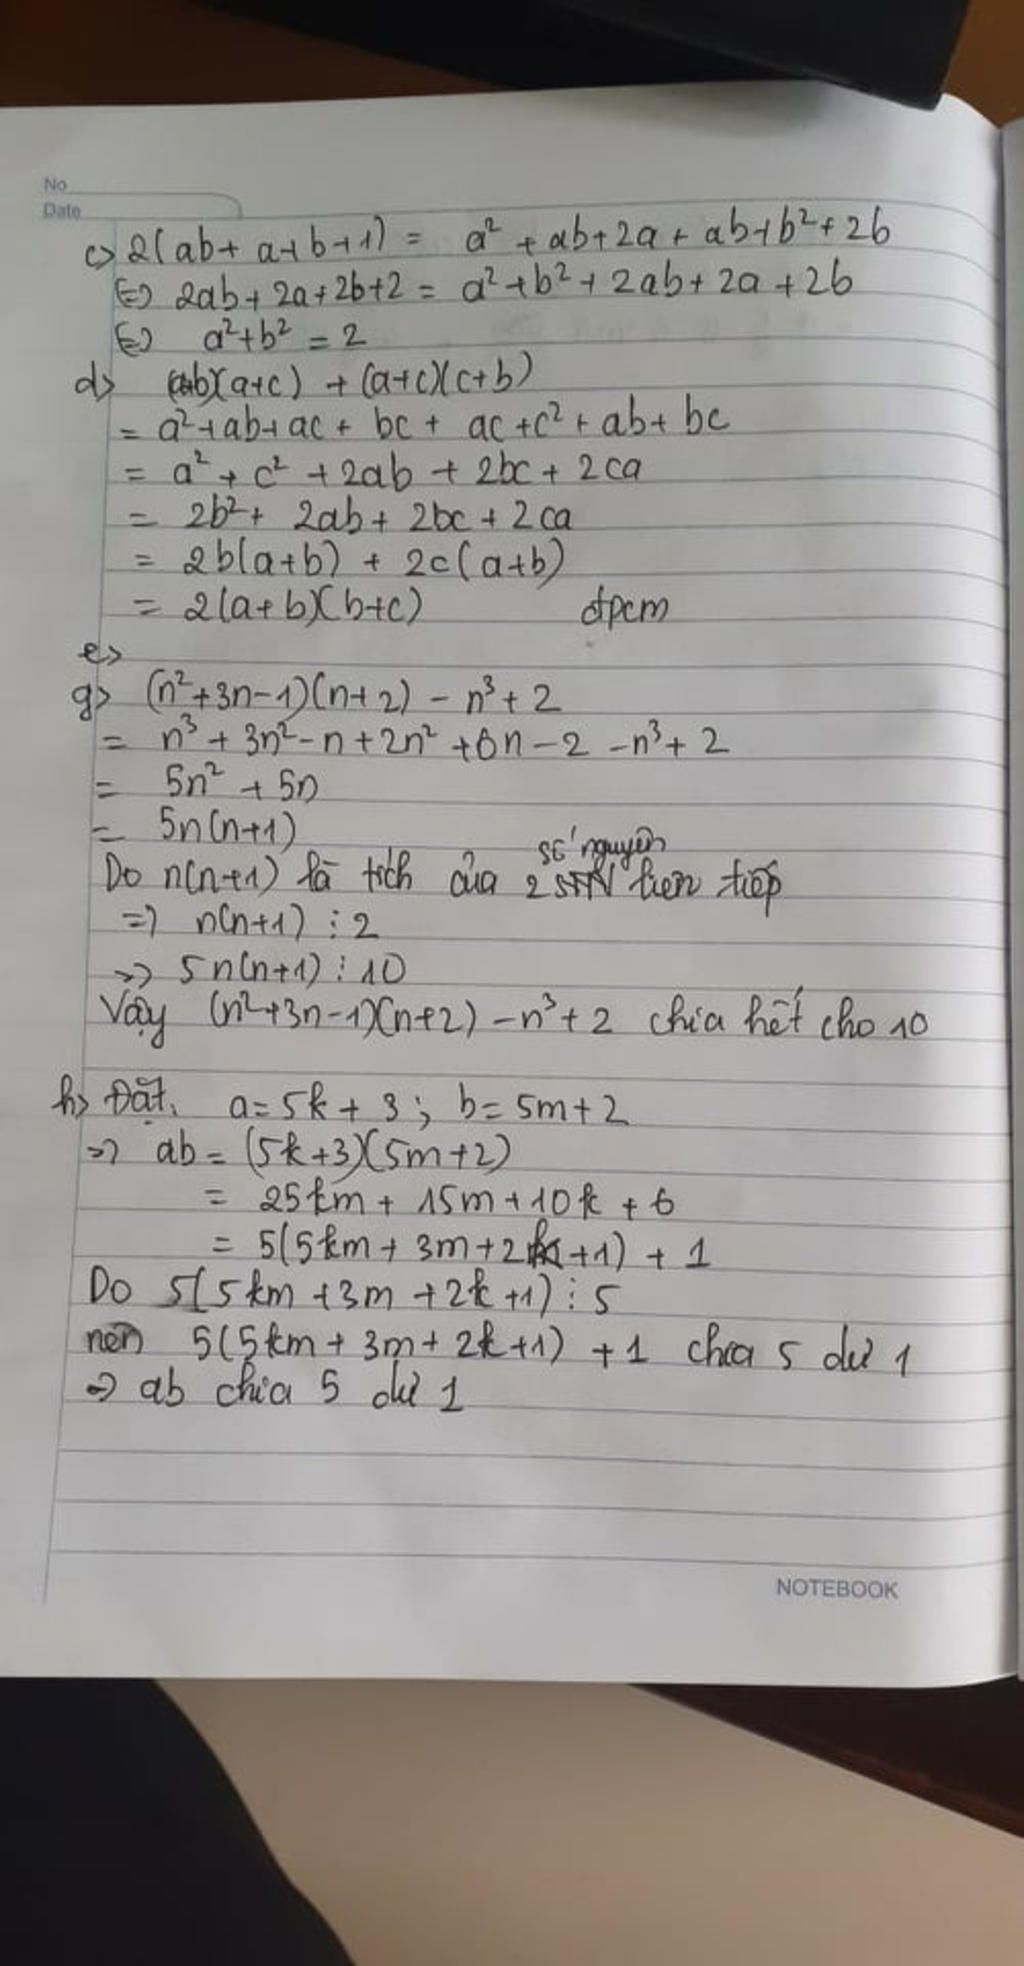 No
Date
c> 2(ab + a + b + 1) = a² + ab + 2a + ab + b² + 2b
(=) 2ab + 2a + 2b + 2 = a² + b² + 2ab + 2a + 2b
(=) a² + b² = 2
d> (a+b)(a+c) + (a+c)(c+b)
= a² + ab + ac + bc + ac + c² + ab + bc
= a² + c² + 2ab + 2bc + 2ca
= 2b² + 2ab + 2bc + 2ca
= 2b(a+b) + 2c(a+b)
= 2(a+b)(b+c) đpcm
e>
g> (n² + 3n - 1)(n + 2) - n³ + 2
= n³ + 3n² - n + 2n² + 6n - 2 - n³ + 2
= 5n² + 5n
= 5n(n+1)
số nguyên
Do n(n+1) là tích của 2 liên tiếp
=) n(n+1) ⋮ 2
=> 5n(n+1) ⋮ 10
Vậy (n² + 3n - 1)(n + 2) - n³ + 2 chia hết cho 10
h> Đặt a = 5k + 3 ; b = 5m + 2
=) ab = (5k + 3)(5m + 2)
= 25km + 15m + 10k + 6
= 5(5km + 3m + 2k + 1) + 1
Do 5(5km + 3m + 2k + 1) ⋮ 5
nên 5(5km + 3m + 2k + 1) + 1 chia 5 dư 1
=> ab chia 5 dư 1
NOTEBOOK